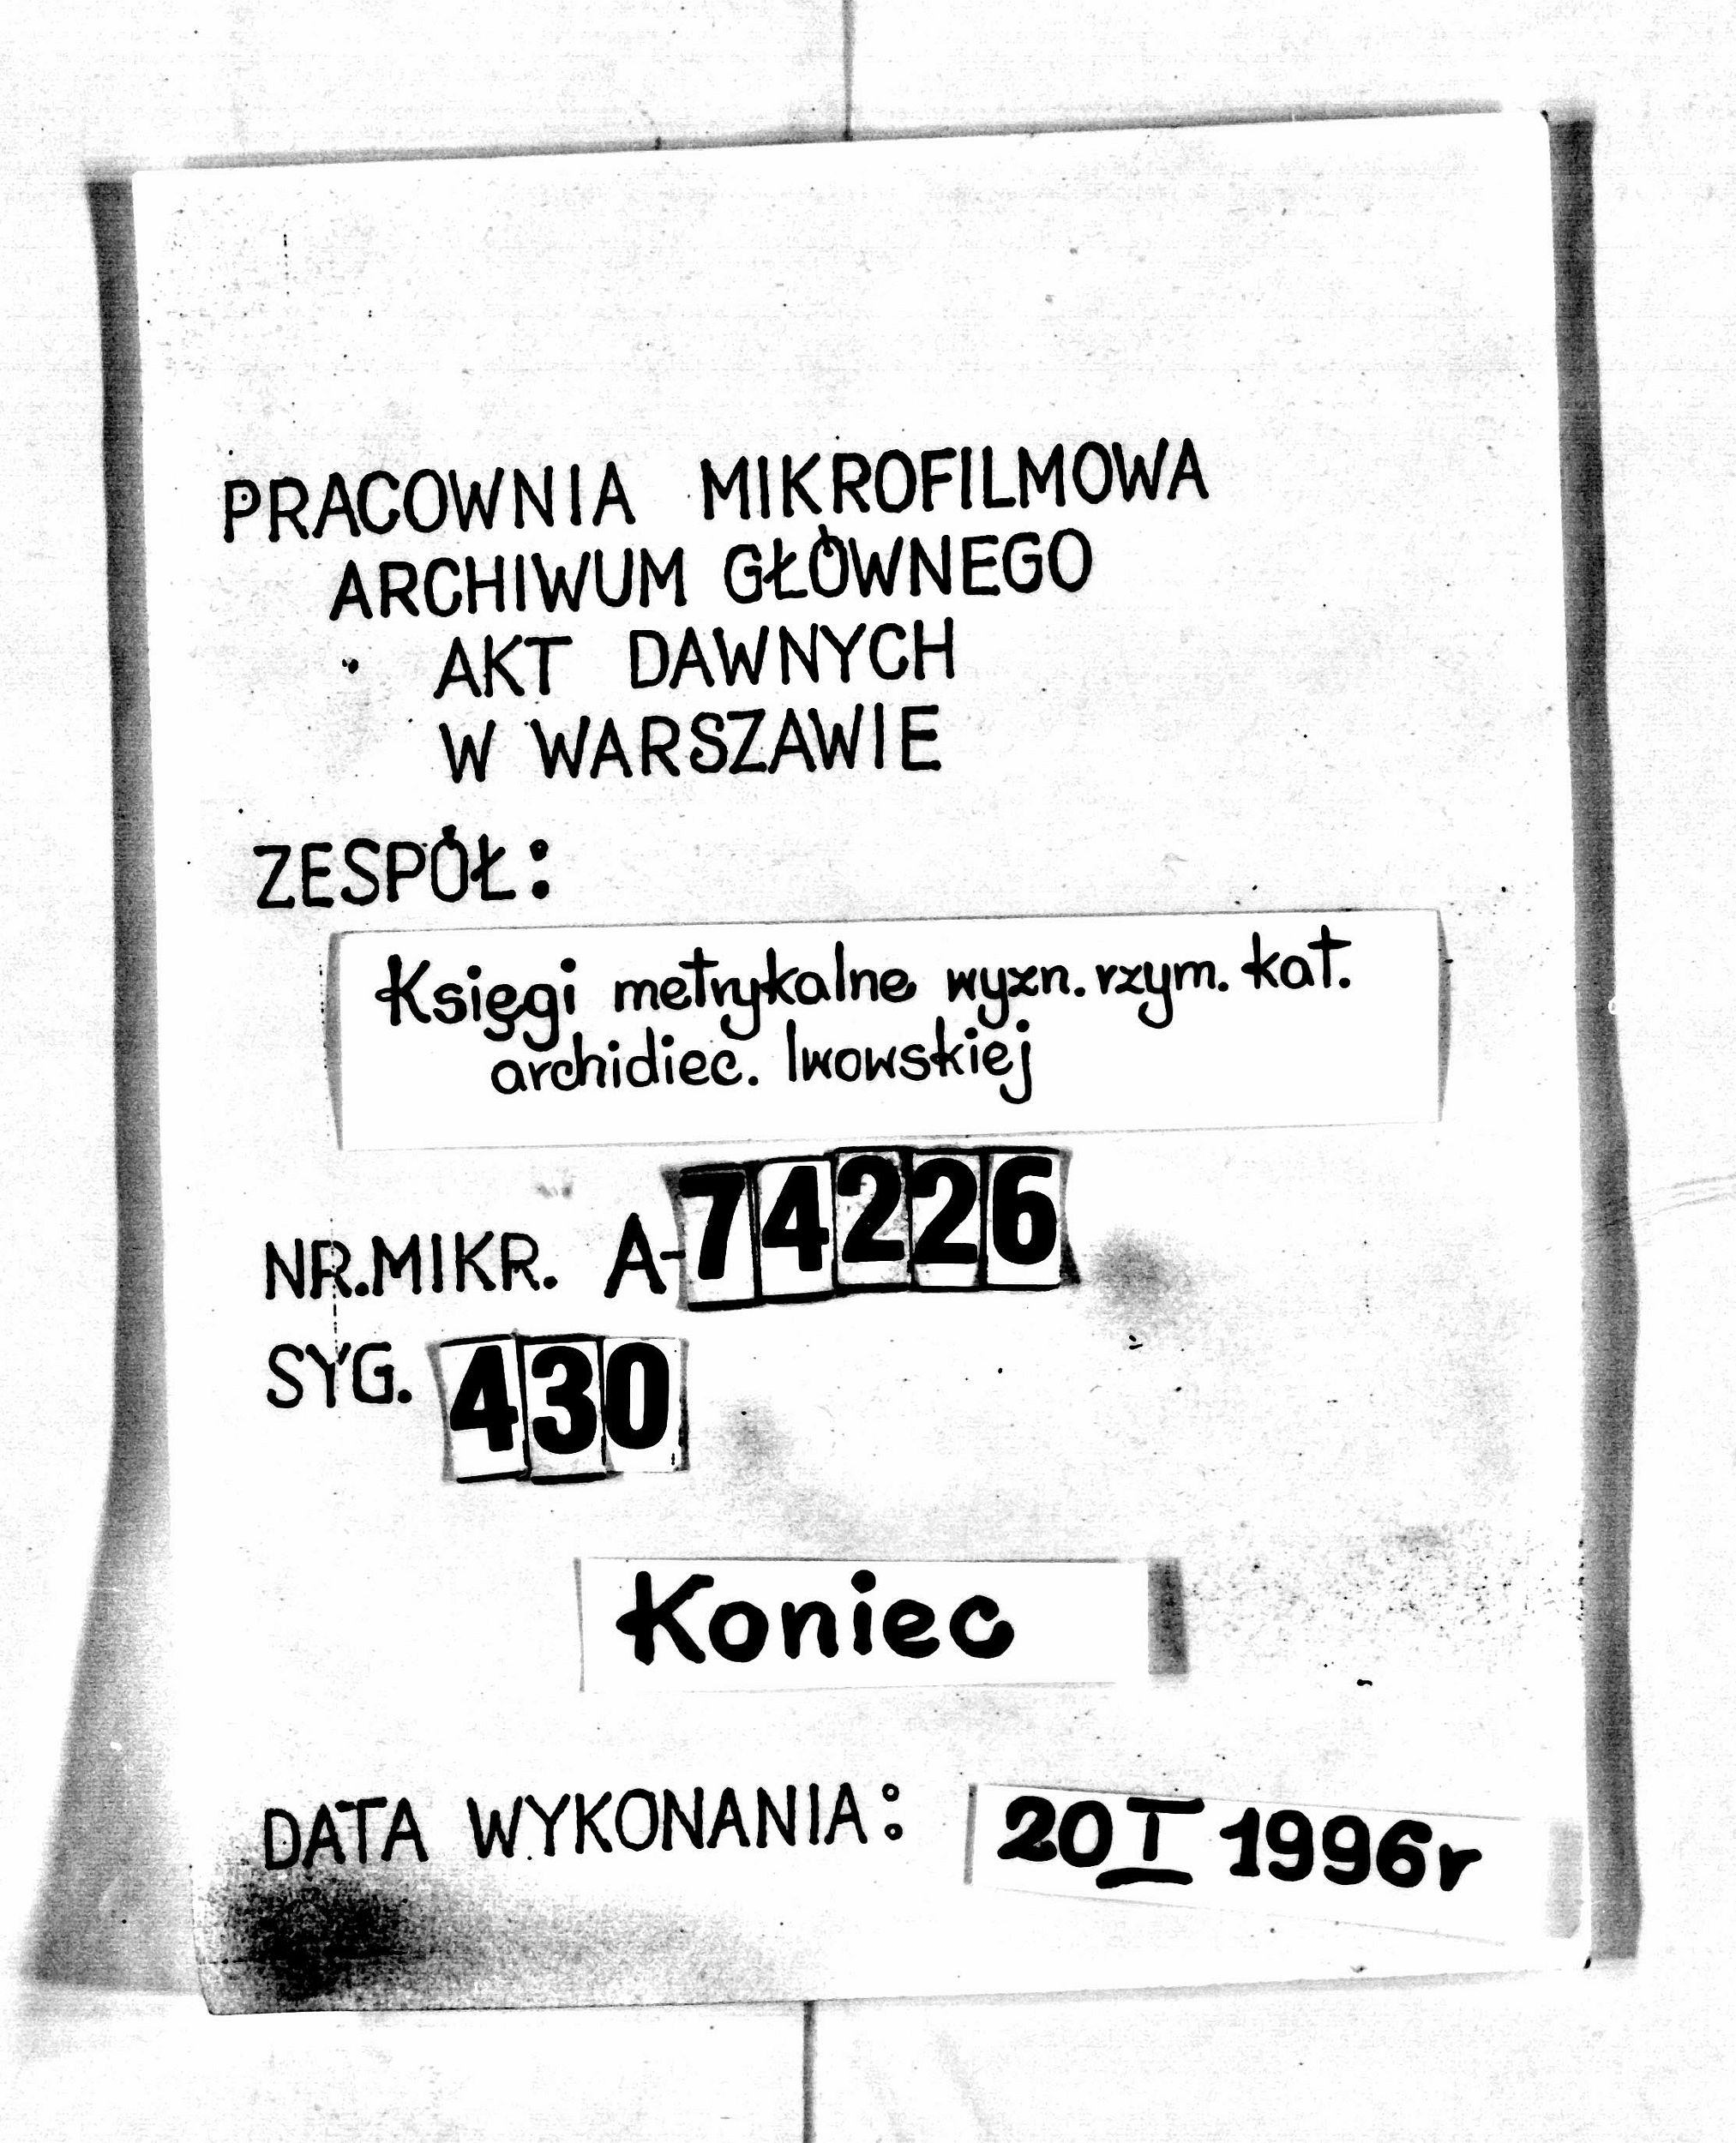 PRACOWNIA MIKROFILMOWA
ARCHIWUM GŁÓWNEGO
AKT DAWNYCH
W WARSZAWIE
ZESPÓŁ:
Księgi metrykalne wyzn. rzym. kat.
archidiec. lwowskiej
NR. MIKR. A-74226
SYG. 430
Koniec
DATA WYKONANIA: 20 I 1996r